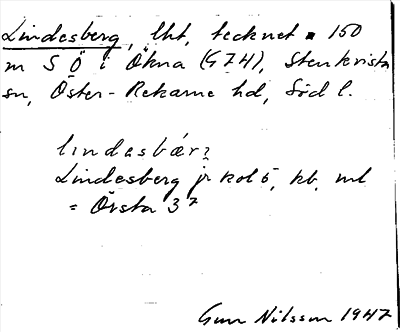 Lindesberg, lht, tecknet 150
m S Ö i Ökna (G74), Stenkvista
sn, Öster-Rekarne hd, Södl.
lindesbær
Lindesberg kb, ml
= Örsta 3⁷
Gun Nilsson 1947